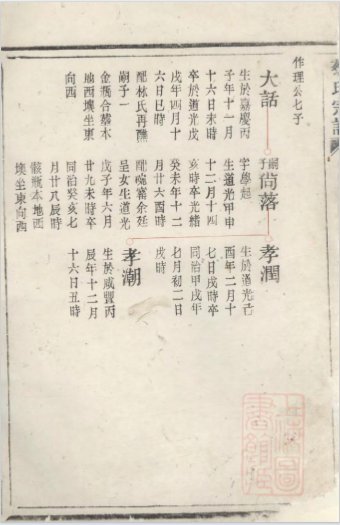 氏宗譜
作理公七子
大話
生於嘉慶丙
子年十一月
十六日未時
卒於道光戊
戌年四月十
六日巳時
配林氏再醮
嗣子一
金瓶合葬本
地西壞坐東
向西
嗣子尚落
字學超
生道光甲申
十二月十四
亥時卒光緒
癸未年十二
月廿六酉時
配碗窰余廷
呈女生道光
戊子年六月
廿九未時卒
同治癸亥七
月廿八辰時
骸瓶本地西
壞坐東向西
孝潤
生於道光己
酉年二月十
七日戌時卒
同治甲戌年
七月初二日
戌時
孝潮
生於咸豐丙
辰年十二月
十六日丑時
上海圖
書館藏